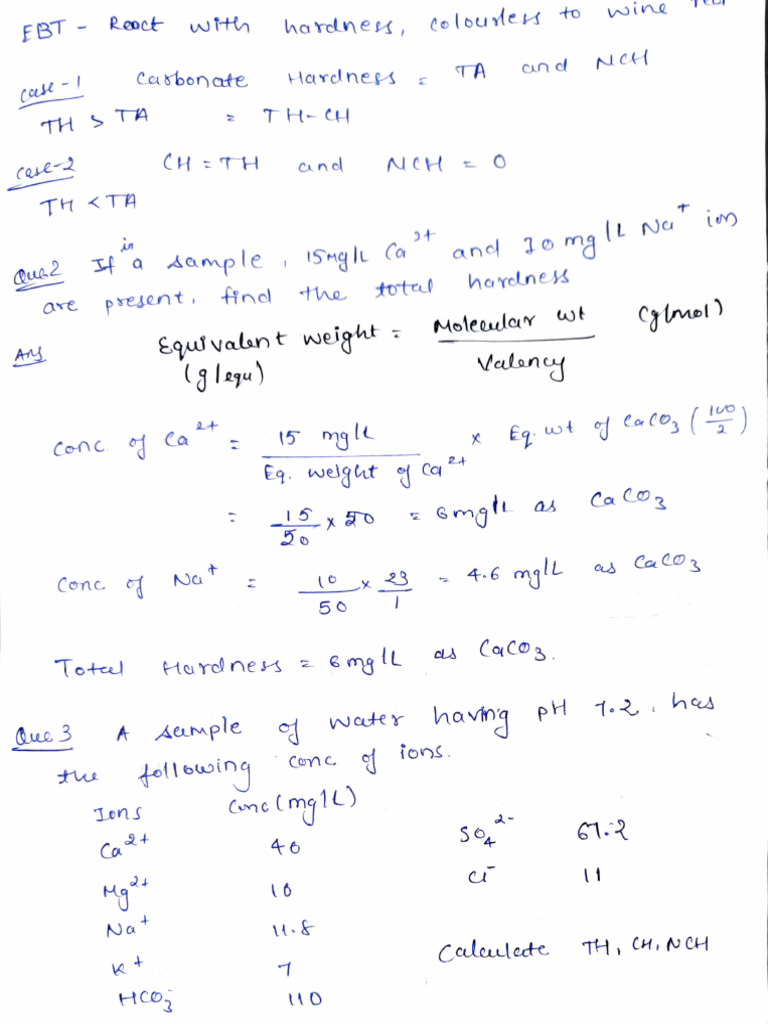 EBT - React with hardness, colourless to wine red
Case-1 Carbonate Hardness = TA and NCH
TH > TA = TH-CH
Case-2 CH = TH and NCH = 0
TH < TA
Que2 If in a sample, 15mg/L Ca2+ and 10 mg/L Na+ ion
are present, find the total hardness
Ans Equivalent weight = Molecular wt (g/mol)
(g/equ) Valency
Conc of Ca2+ = 15 mg/L × Eq. wt of CaCO3 (100/2)
Eq. weight of Ca2+
= 15/50 × 20 = 6mg/L as CaCO3
Conc of Na+ = 10/50 × 23/1 = 4.6 mg/L as CaCO3
Total Hardness = 6mg/L as CaCO3.
Que 3 A sample of water having pH 7.2. has
the following conc of ions.
Ions Conc (mg/L)
Ca2+ 40 SO4 2- 67.2
Mg2+ 10 Cl- 11
Na+ 11.8
K+ 7 Calculate TH, CH, NCH
HCO3- 110